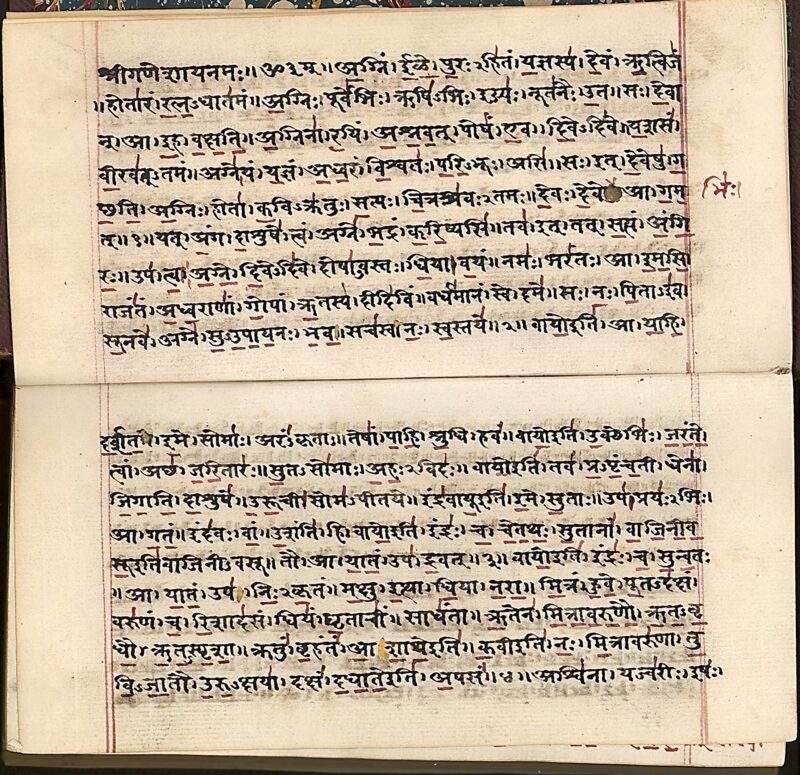 श्रीगणेशायनमः॥ॐ३म्॥अ॒ग्निं।ई॒ळे॒।पु॒रःऽहि॑तं।य॒ज्ञस्य॑।दे॒वं।ऋ॒त्विजं॑
॥होता॑रं।र॒त्न॒ऽधात॑मं॥अ॒ग्निः।पूर्वे॑भिः।ऋषि॑ऽभिः।ईड्यः॑।नूत॑नैः।उ॒त॥सः।दे॒वा
न्।आ।इ॒ह।व॒क्ष॒ति॒॥अ॒ग्निना॑।र॒यिं।अ॒श्न॒व॒त्।पोषं॑।ए॒व।दि॒वेऽदि॑वे॥य॒शसं॑
वी॒रव॑त्ऽतमं॥अग्ने॑।यं।य॒ज्ञं।अ॒ध्व॒रं।वि॒श्वतः॑।प॒रि॒ऽभूः।असि॑॥सः।इत्।दे॒वेषु॑।ग॒
च्छ॒ति॒।अ॒ग्निः।होता॑।क॒विऽक्र॑तुः।स॒त्यः।चि॒त्रश्र॑वःऽतमः॥दे॒वः।दे॒वे आ।ग॒म॒
भिः॑।
त्॥१॥यत्।अं॒ग।दा॒शुषे॑।त्वं।अग्ने॑।भ॒द्रं।क॒रि॒ष्यसि॑॥तव॑।इत्।तत्।स॒त्यं।अं॒गि॒
रः॒॥उप॑।त्वा॒।अ॒ग्ने॒।दि॒वेऽदि॑वे।दोषा॑ऽवस्तः।धि॒या।व॒यं॥नमः॑।भरं॑तः।आ।इ॒म॒सि॒
राजं॑तं।अ॒ध्व॒राणां॑।गो॒पां।ऋ॒तस्य॑।दीदि॑विं॥वर्ध॑मानं।स्वे।दमे॑॥सः।नः॒।पि॒ताऽइ॑व
सू॒नवे॑।अग्ने॑।सु॒ऽउ॒पा॒य॒नः।भ॒व॒॥सच॑स्व।नः॒।स्व॒स्तये॑॥२॥वायो॒इति॑।आ।या॒हि॒
द॒र्श॒त॒।इ॒मे।सोमाः॑।अरं॑ऽकृताः॥तेषां॑।पा॒हि॒।श्रु॒धि।हवं॑॥वायो॒इति॑।उ॒क्थेभिः॑।ज॒रं॒ते॒
त्वां।अच्छ॑।ज॒रि॒तारः॑॥सु॒तऽसो॑माः।अ॒हः॒ऽविदः॑॥वायो॒इति॑।तव॑।प्र॒ऽपृं॒च॒ती।धेना॑।
जि॒गा॒ति॒।दा॒शुषे॑॥उ॒रू॒ची।सोम॑ऽपीतये॥इंद्र॑वायू॒इति॑।इ॒मे।सु॒ताः॥उप॑।प्रयः॑ऽभिः।
आ।ग॒तं॒॥इंद॑वः।वां॒।उ॒शंति॑।हि॥वायो॒इति॑।इंद्रः॑।च॒।चे॒त॒थः॒।सु॒तानां॑।वा॒जि॒नी॒व॒
सू॒इति॑वाजिनीऽवसू॥तौ।आ।या॒तं॒।उप॑।द्र॒वत्॥३॥वायो॒इति॑।इंद्रः॑।च॒।सु॒न्व॒तः
॥आ।या॒तं॒।उप॑।निः॒ऽकृ॒तं॥म॒क्षु।इ॒त्था।धि॒या।न॒रा॒॥मि॒त्रं।हु॒वे॒।पू॒तऽद॑क्षं।
वरु॑णं।च॒।रि॒शाद॑सं॥धियं॑।घृ॒ताचीं॑।साधं॑ता॥ऋ॒तेन॑।मि॒त्रा॒व॒रु॒णौ॒।ऋ॒त॒ऽवृ॒
धौ॒।ऋ॒त॒ऽस्पृ॒शा॒॥क्रतुं॑।बृ॒हंतं॑।आ॒शा॒थे॒इति॑॥क॒वीइति॑।नः॒।मि॒त्रावरु॑णा।तु॒
वि॒ऽजा॒तौ।उ॒रु॒ऽक्षया॑।दक्षं॑।द॒धा॒ते॒इति॑।अ॒पसं॑॥४॥अश्वि॑ना।यज्व॑रीः।इषः॑।